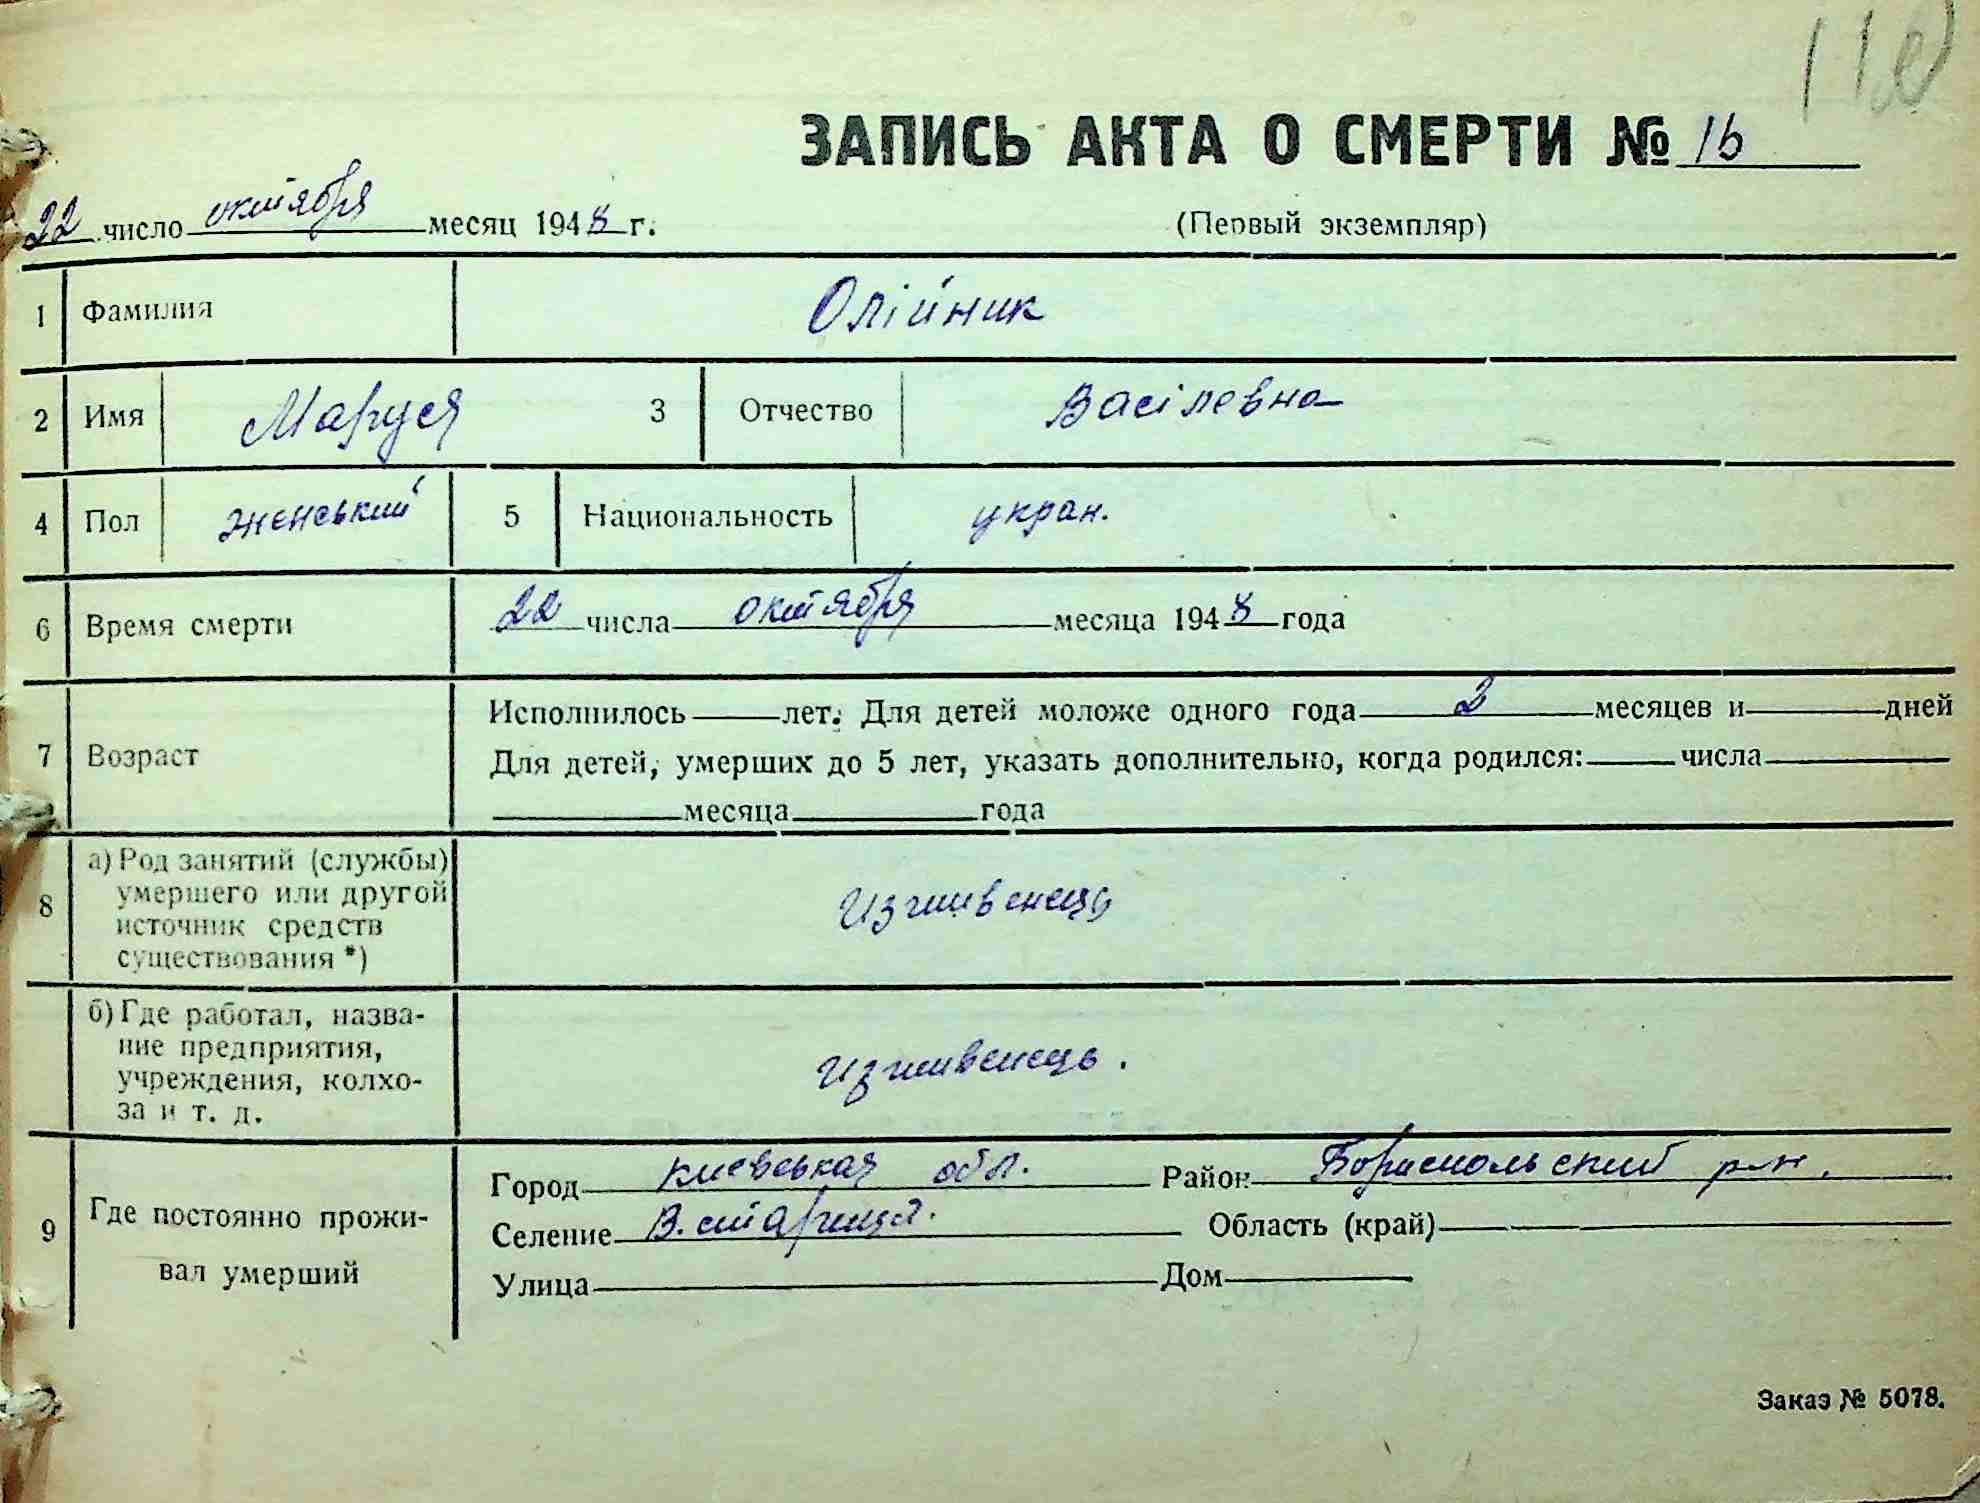 ЗАПИСЬ АКТА О СМЕРТИ № 16
22 число октября месяц 1948 г.
(Первый экземпляр)
1 Фамилия Олійник
2 Имя Маруся 3 Отчество Васілевна
4 Пол женський 5 Национальность укран.
6 Время смерти 22 числа октября месяца 1948 года
7 Возраст
Исполнилось лет. Для детей моложе одного года 2 месяцев и дней
Для детей, умерших до 5 лет, указать дополнительно, когда родился: числа
месяца года
8 а) Род занятий (службы)
умершего или другой
источник средств
существования *)
изживенець
б) Где работал, назва-
ние предприятия,
учреждения, колхо-
за и т. д.
изживенець.
9 Где постоянно прожи-
вал умерший
Город киевськая обл. Район Бориспольский р-н.
Селение В. Старица. Область (край)
Улица Дом
Заказ № 5078.